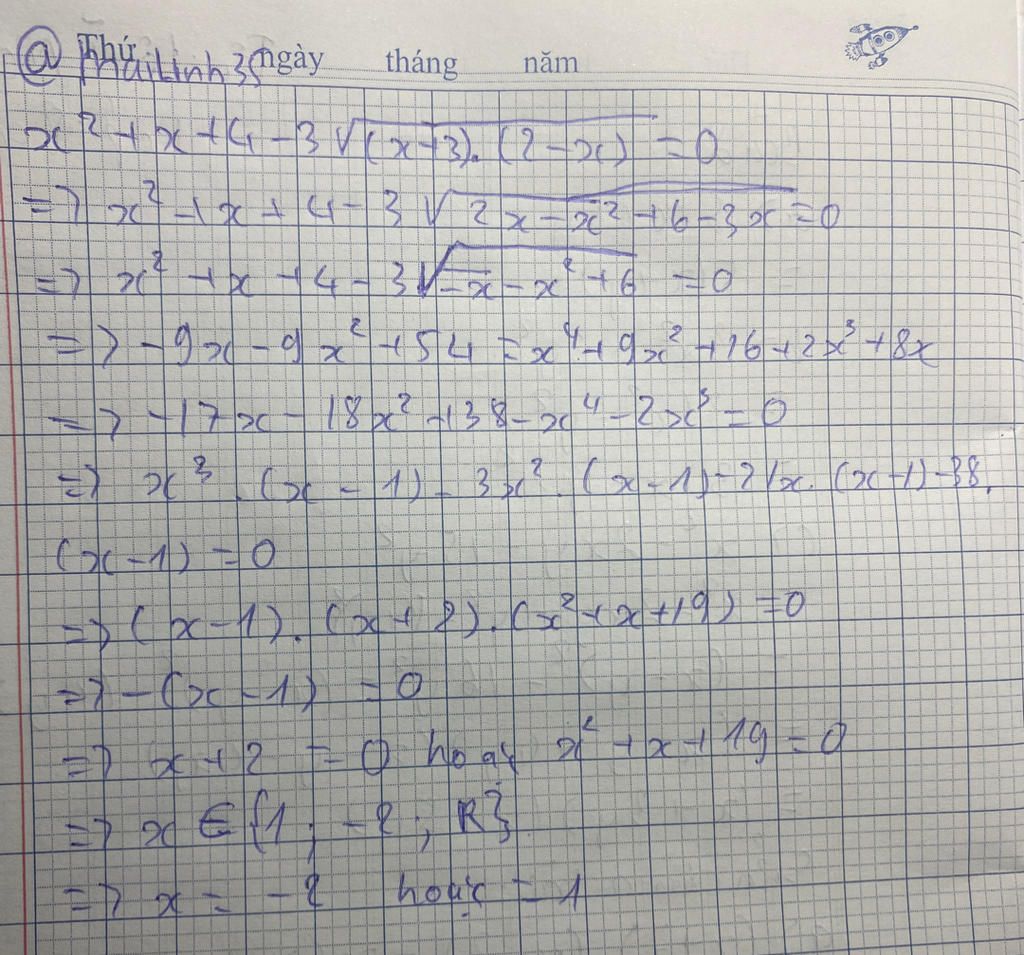 @ Thứ ngày tháng năm
MaiLinh35
x² + x + 4 - 3√(x+3).(2-x) = 0
=> x² + x + 4 - 3√2x - x² + 6 - 3x = 0
=> x² + x + 4 - 3√-x - x² + 6 = 0
=> -9x - 9x² + 54 = x⁴ + 9x² + 16 + 2x³ + 8x
=> -17x - 18x² + 38 - x⁴ - 2x³ = 0
=> x³.(x-1) - 3x².(x-1) - 21x.(x-1) - 38.
(x-1) = 0
=> (x-1).(x+2).(x²+x+19) = 0
=> -(x-1) = 0
=> x + 2 = 0 hoặc x² + x + 19 = 0
=> x ∈ {1; -2; R}
=> x = -2 hoặc = 1